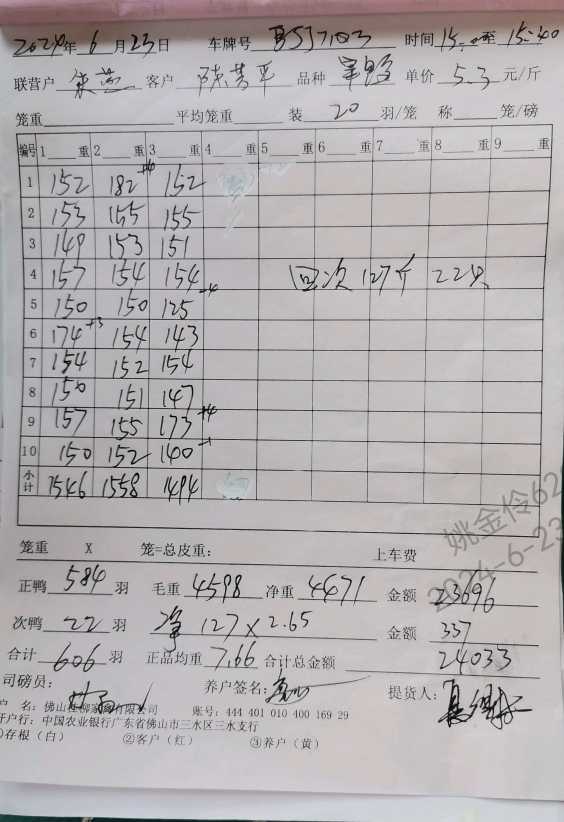 2024年 6 月 23 日 车牌号 时间 15: 至 15:40
联营户 客户 品种 单价 5.3 元/斤
笼重 平均笼重 装 20 羽/笼 称 笼/磅
编号 1 重 2 重 3 重 4 重 5 重 6 重 7 重 8 重 9 重
1 152 182 +4 152
2 153 155 155
3 149 153 151
4 157 154 154 回次 127斤 22只
5 150 150 125 -4
6 174 +3 154 143
7 154 152 154
8 150 151 147
9 157 155 173 +4
10 150 152 140 -1
小计 1546 1558 1494
姚金伶62
2024-6-23
笼重 X 笼=总皮重： 上车费
正鸭 584 羽 毛重 4598 净重 4471 金额 23696
次鸭 22 羽 净 127×2.65 金额 337
合计 606 羽 正品均重 7.66 合计总金额 24033
司磅员： 养户签名： 提货人：
户 名：佛山 公司 账号：444 401 010 400 169 29
开户行：中国农业银行广东省佛山市三水区三水支行
①存根（白） ②客户（红） ③养户（黄）